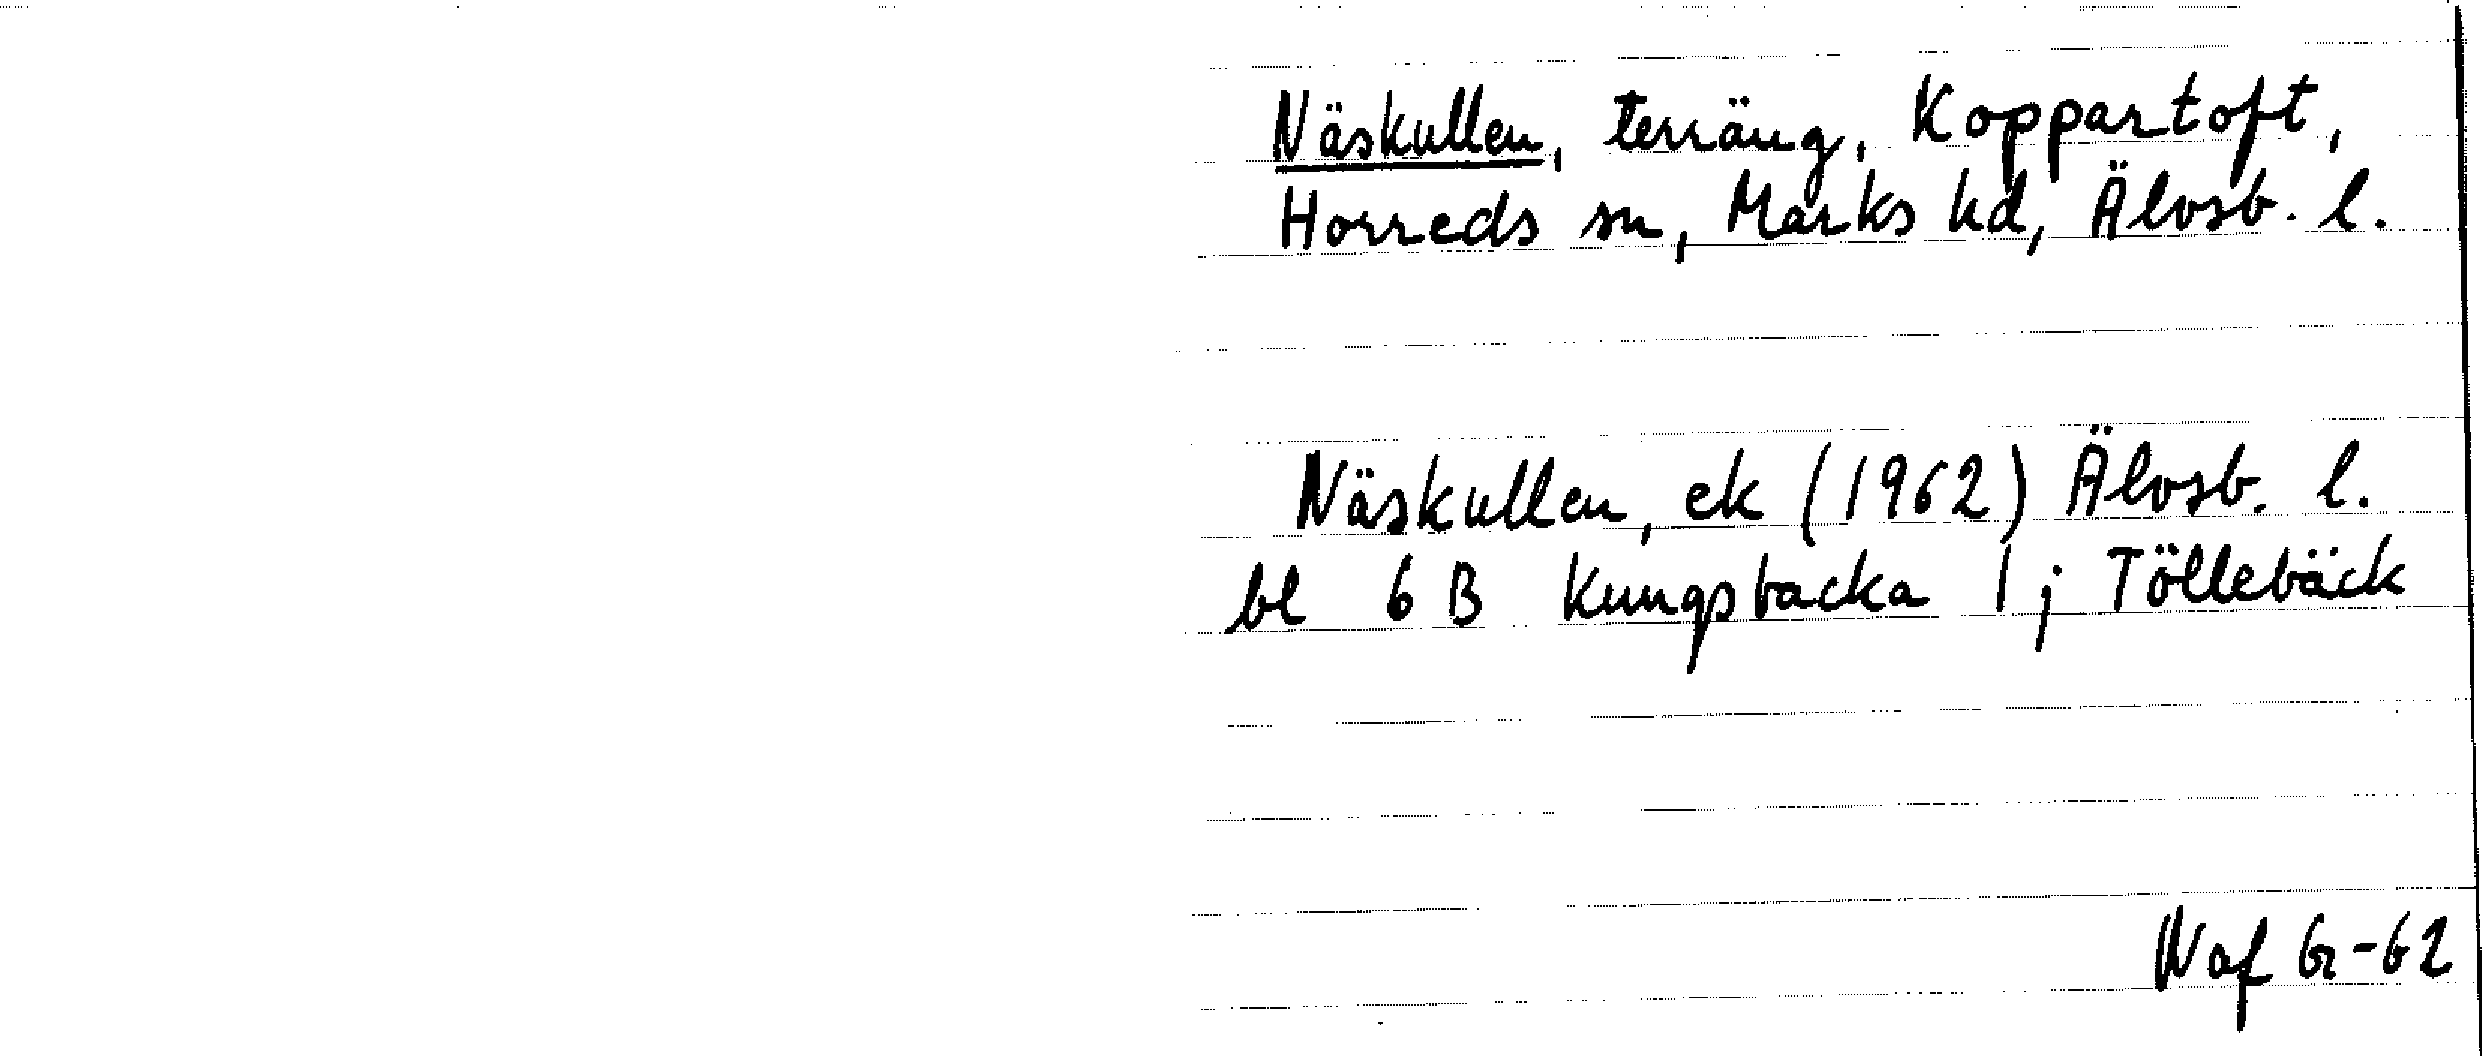 Näskullen, terräng, Koppartoft,
Horreds sn, Marks hd, Älvsb. l.
Näskullen, ek (1962) Älvsb. l.
bl 6 B Kungsbacka 1; Töllebäck
Waf Gr-62